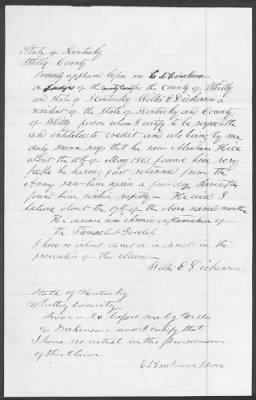 State of Kentucky
Whitly County
Personly appeared before me
a Judge of the County Court for the County of Whitly
and State of Kentucky Willis E Dickerson a
resident of the State of Kentucky and County
of Whitly person whom I certify to be respectable
and intitled to credit and who being by me
duly sworn says that he saw Abraham
about the 10th of May 186 found him very
feeble he having Just returned from the
Army saw him again a few days thereafter
found him sinking rapidly He died I
believe about the 17th of the above named month
His disease was chronic inflamation of
the Stomach & Bowels
I have no intrest direct or in direct in the
prosecution of this claim
Willis E Dickerson
State of Kentucky
Whitley County
Sworn to before me by Willis
E Dickerson and I certify that
I have no intrest in the prosecution
of this Claim